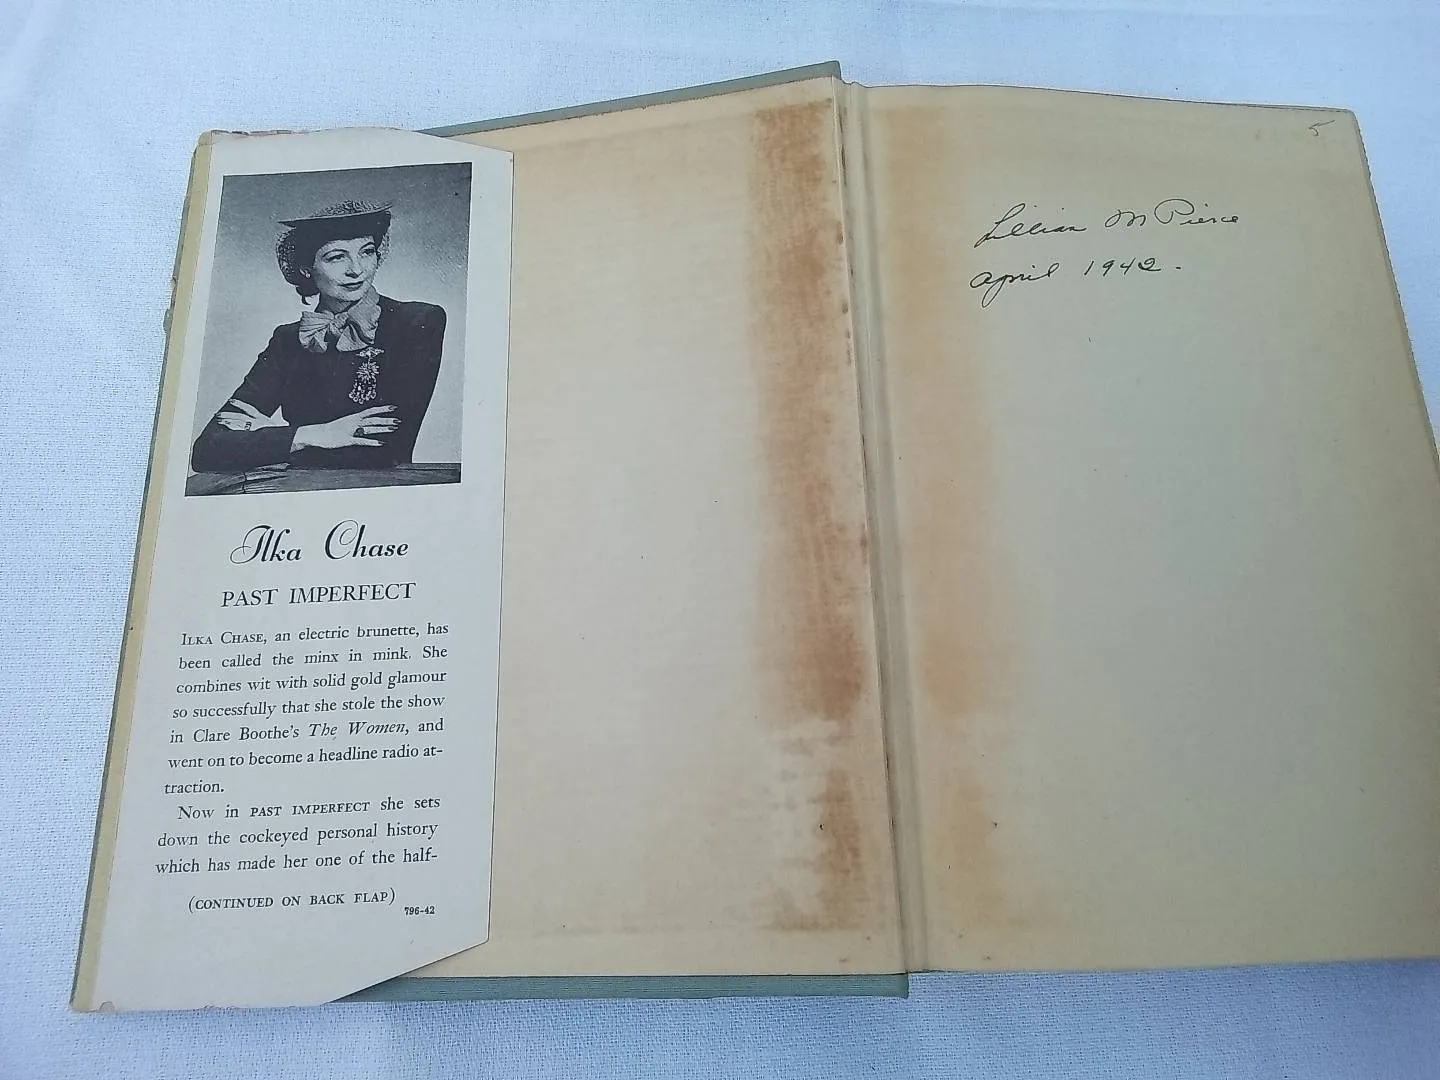 Ilka Chase
PAST IMPERFECT
ILKA CHASE, an electric brunette, has
been called the minx in mink. She
combines wit with solid gold glamour
so successfully that she stole the show
in Clare Boothe's The Women, and
went on to become a headline radio at-
traction.
Now in PAST IMPERFECT she sets
down the cockeyed personal history
which has made her one of the half-
(CONTINUED ON BACK FLAP)
796-42
5
Lillian M Pierce
April 1942.